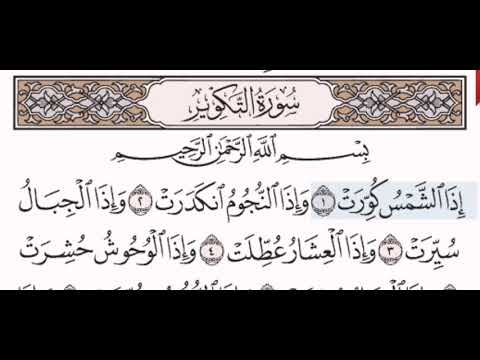 سُورَةُ التَّكْوِيرِ
بِسْمِ اللَّهِ الرَّحْمَٰنِ الرَّحِيمِ
إِذَا الشَّمْسُ كُوِّرَتْ ١ وَإِذَا النُّجُومُ انكَدَرَتْ ٢ وَإِذَا الْجِبَالُ
سُيِّرَتْ ٣ وَإِذَا الْعِشَارُ عُطِّلَتْ ٤ وَإِذَا الْوُحُوشُ حُشِرَتْ